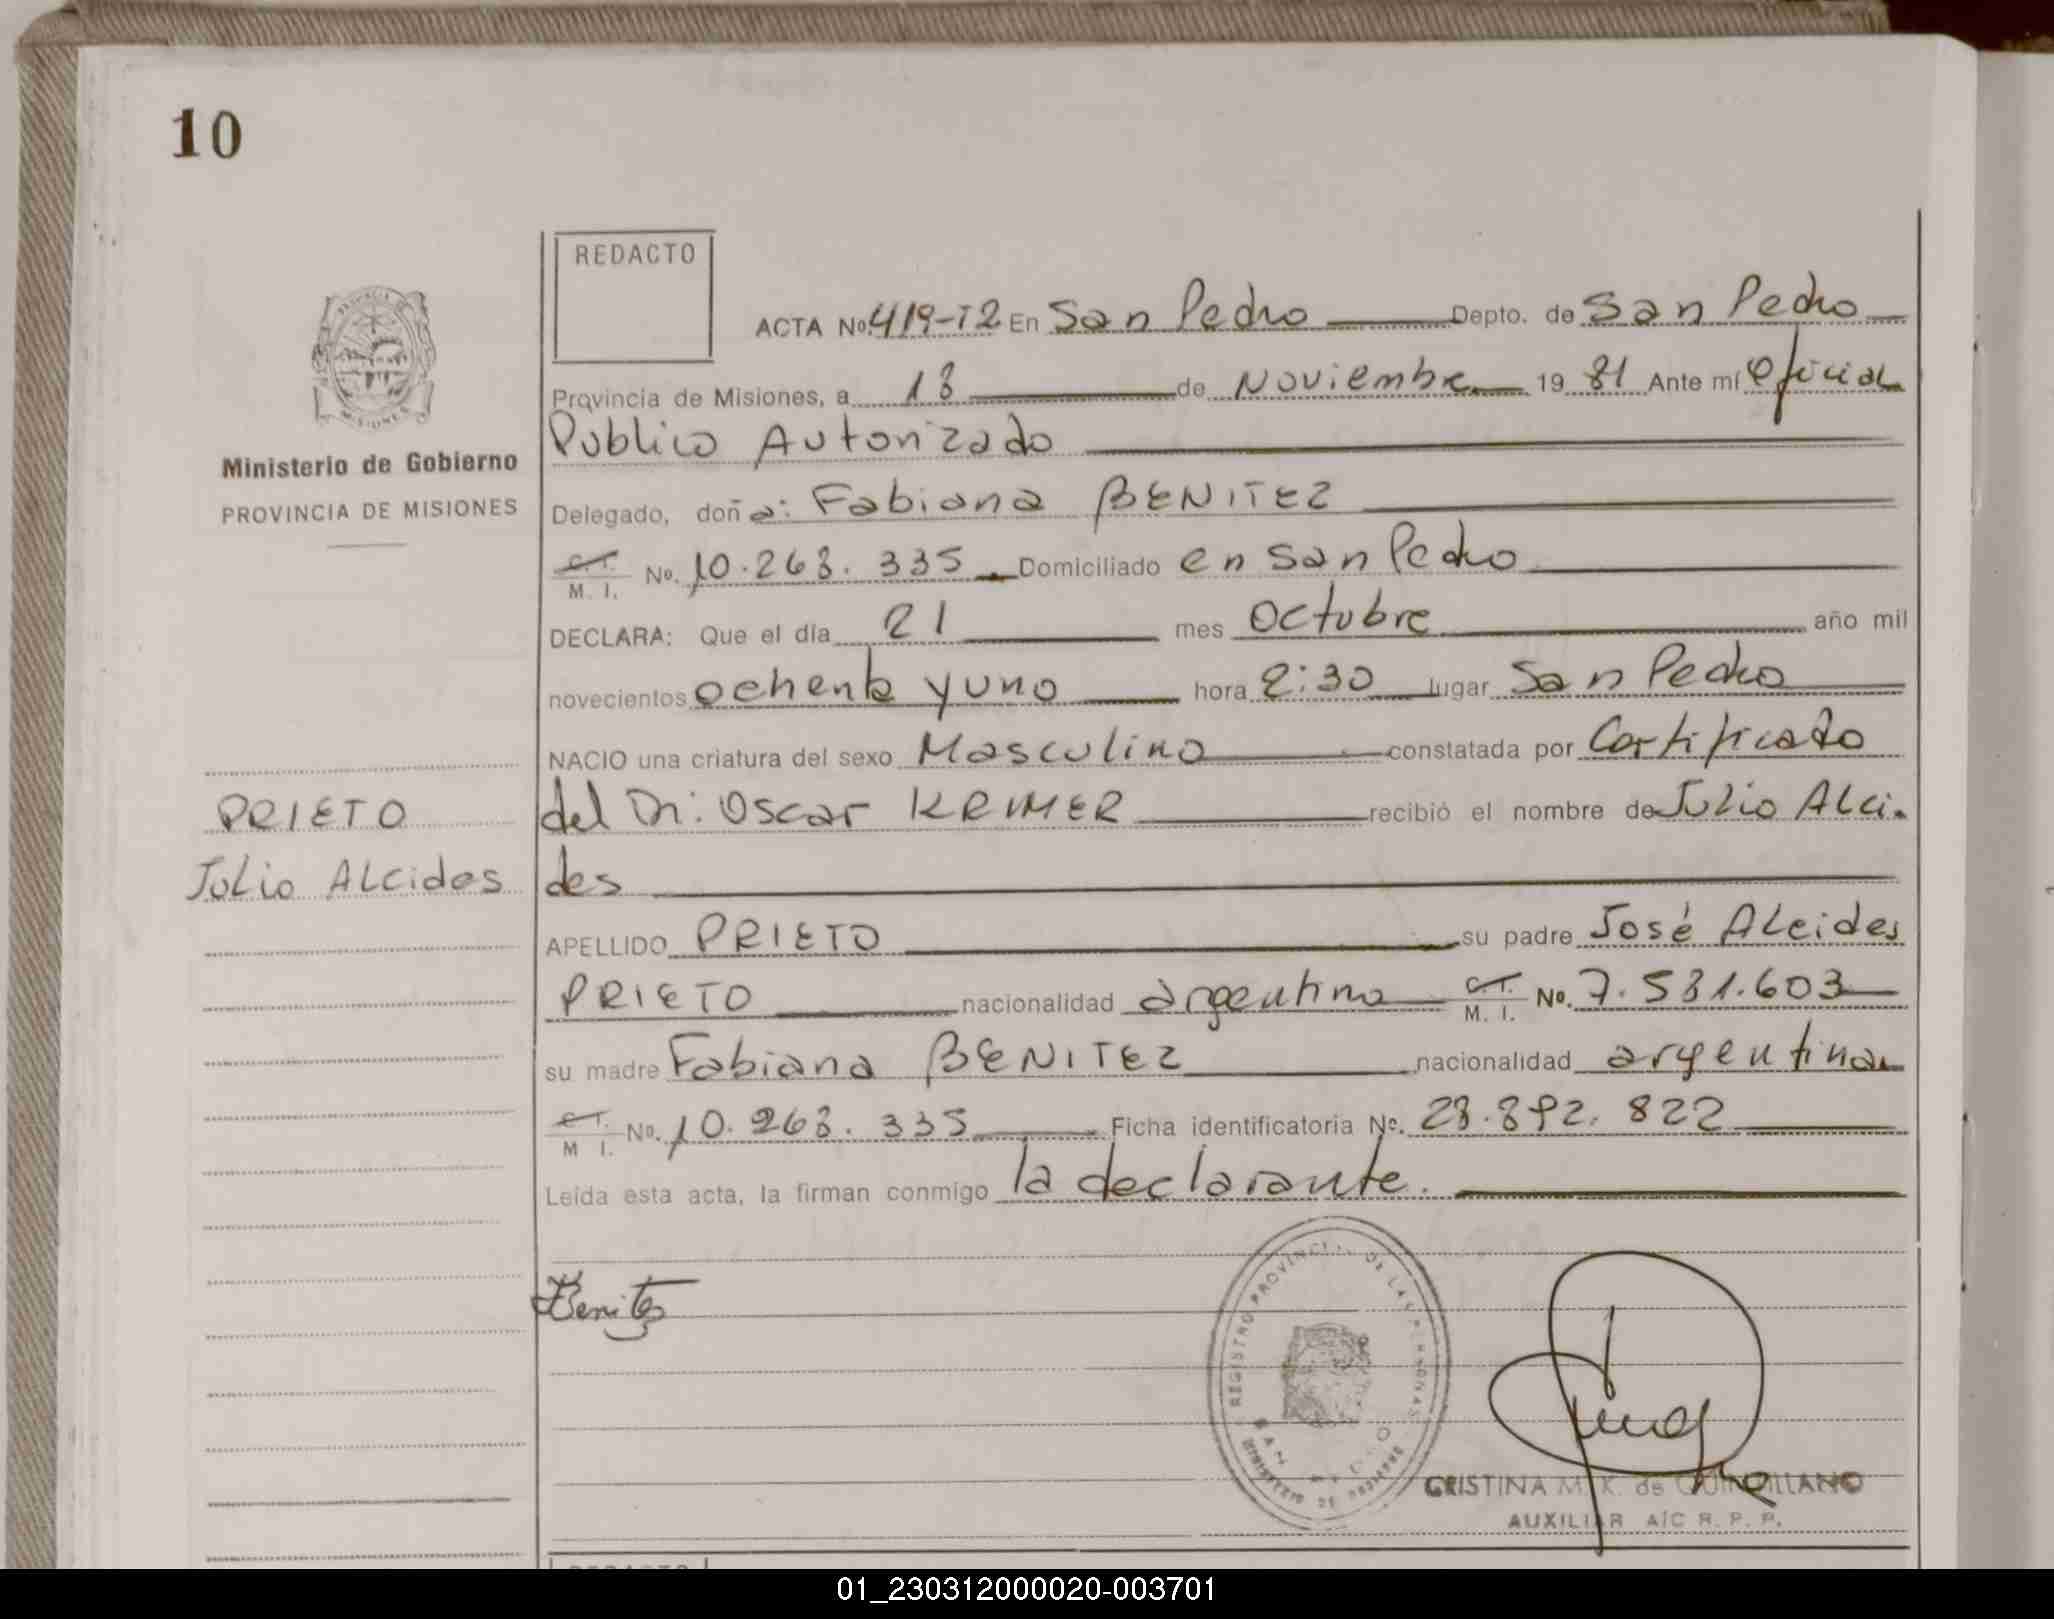 10
REDACTO
ACTA No. 419-T2 En San Pedro Depto. de San Pedro
Provincia de Misiones, a 18 de Noviembre 19 81 Ante mí Oficial
Publico Autorizado
Ministerio de Gobierno
PROVINCIA DE MISIONES
Delegado, doña: Fabiana BENITEZ
C.I. M. I. No. 10.268.335 Domiciliado en San Pedro
DECLARA: Que el día 21 mes Octubre año mil
novecientos ochenta y uno hora 2:30 lugar San Pedro
NACIO una criatura del sexo Masculino constatada por Certificado
del Dr: Oscar KRIMER recibió el nombre de Julio Alci-
des
PRIETO
Julio Alcides
APELLIDO PRIETO su padre José Alcides
PRIETO nacionalidad argentino C.I. M. I. No. 7.581.603
su madre Fabiana BENITEZ nacionalidad argentina
C.I. M I. No. 10.268.335 Ficha identificatoria No. 28.892.822
Leída esta acta, la firman conmigo la declarante.
Benitez
REGISTRO PROVINCIAL DE LAS PERSONAS
SAN PEDRO
MINISTERIO DE GOBIERNO
CRISTINA M. K. de
AUXILIAR A/C R. P. P.
REDACTO
01_230312000020-003701